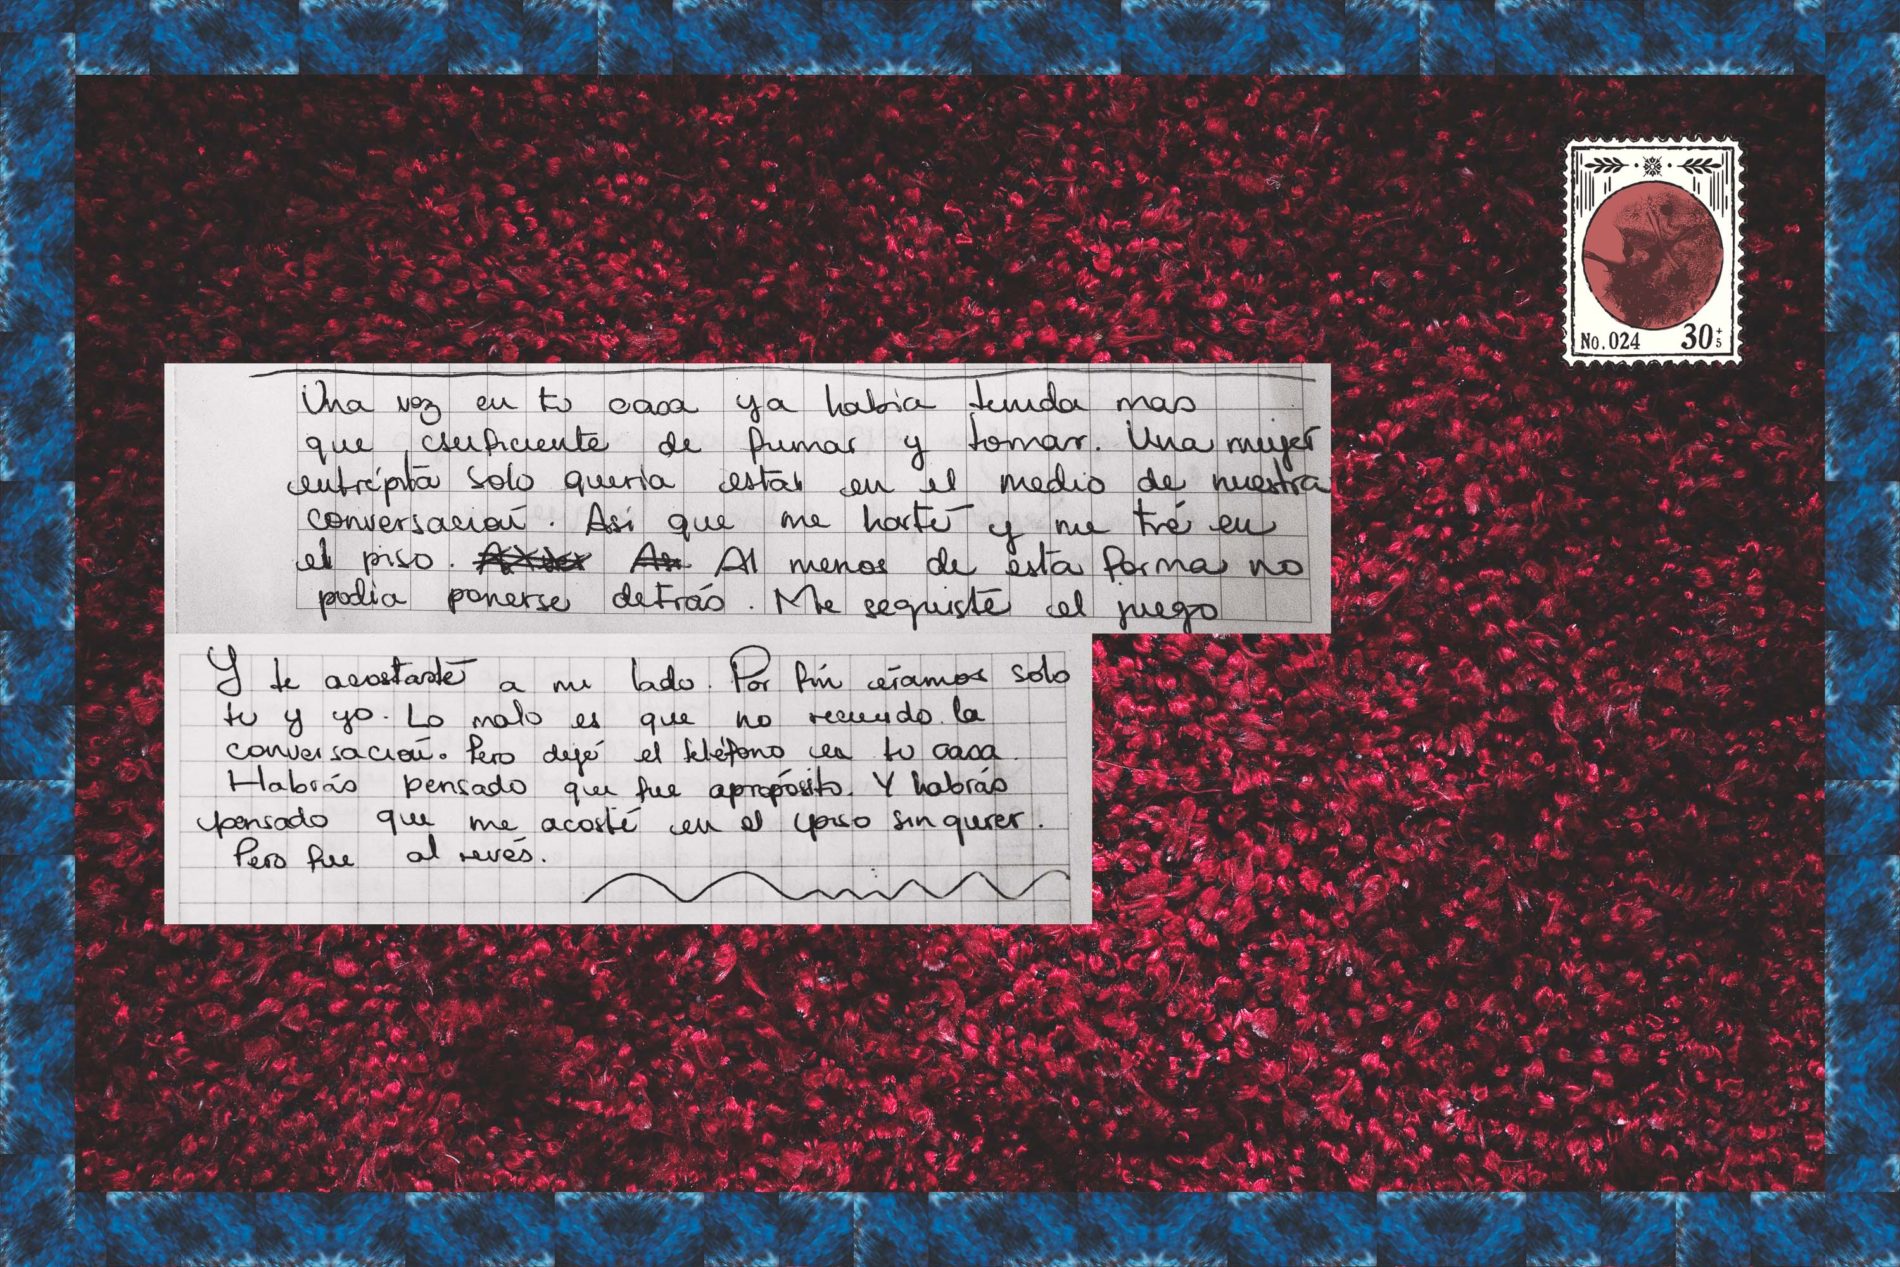 No. 024 30 + 5
Una vez en tu casa ya había tenido mas
que suficiente de fumar y tomar. Una mujer
entrépita solo quería estar en el medio de nuestra
conversación. Así que me harté y me tiré en
el piso. Al menos de esta forma no
podía ponerse detrás. Me seguiste el juego
Y te acostaste a mi lado. Por fin éramos solo
tu y yo. Lo malo es que no recuerdo la
conversación. Pero dejé el teléfono en tu casa.
Habrás pensado que fue apropósito. Y habrás
pensado que me acosté en el piso sin querer.
Pero fue al revés.